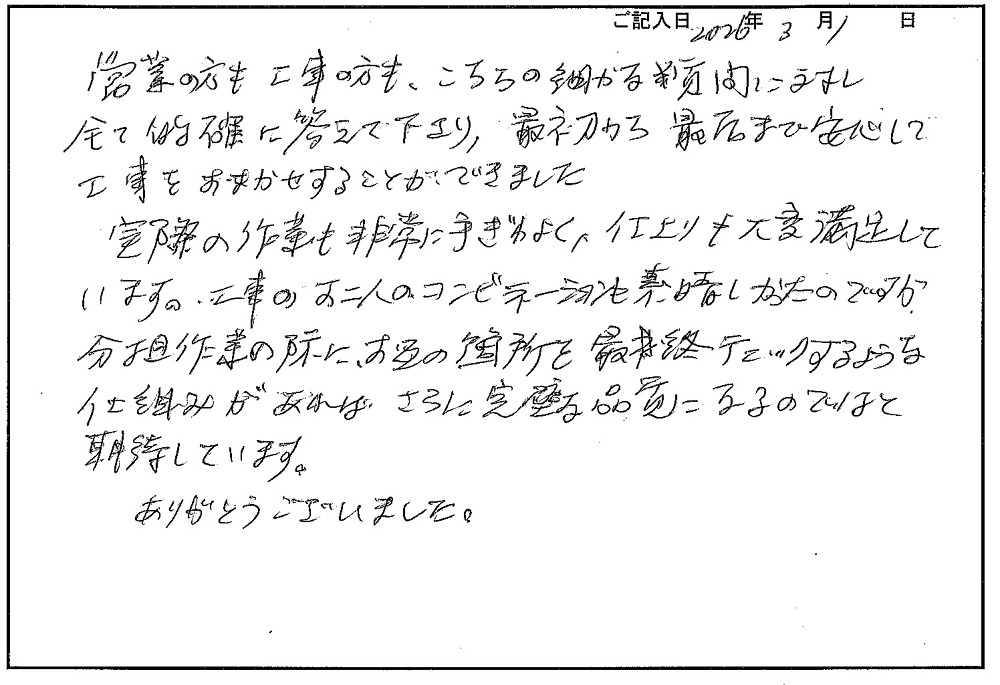 ご記入日 2026年 3 月 1 日
営業の方も工事の方も、こちらの細かな質問にたいし
全て的確に答えて下さり、最初から最后まで安心して
工事をおまかせすることができました
実際の作業も非常に手ぎわよく、仕上りも大変満足して
います。工事のお二人のコンビネーションも素晴しかったのですが
分担作業の際に、お互の箇所を最終チェックするような
仕組みがあれば、さらに完璧な品質になるのではと
期待しています。
ありがとうございました。